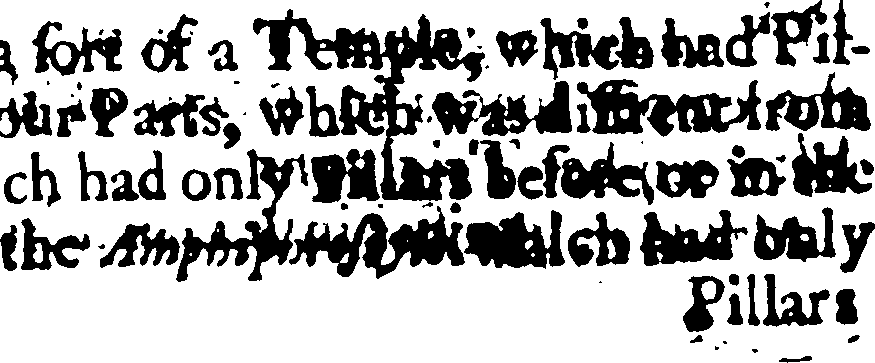 a sort of a Temple, which had Pil-
our Parts, which was different from
ch had only Pillars before, or in the
the Amphiprostyle which had only
Pillars